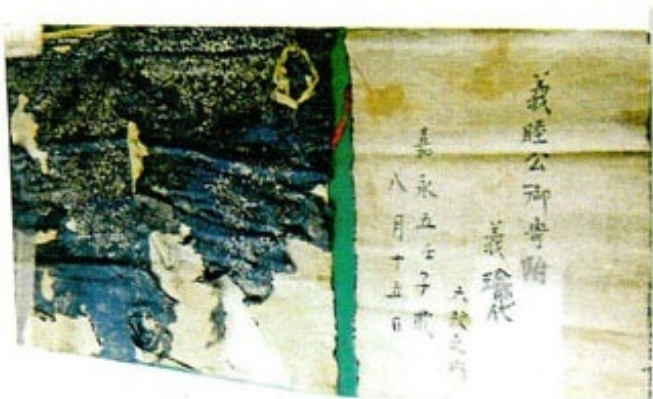 義睦公御寄附
義瑜代
六殿之内
嘉永五壬子歳
八月十五日